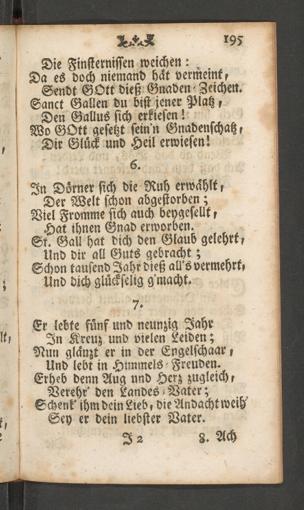 195
Die Finsternissen weichen:
Da es doch niemand hät vermeint,
Sendt GOtt dieß Gnaden-Zeichen.
Sanct Gallen du bist jener Platz,
Den Gallus sich erkiesen!
Wo GOtt gesetzt sein'n Gnadenschatz,
Dir Glück und Heil erwiesen!
6.
In Dörner sich die Ruh erwählt,
Der Welt schon abgestorben;
Viel Fromme sich auch beygesellt,
Hat ihnen Gnad erworben.
St. Gall hat dich den Glaub gelehrt,
Und dir all Guts gebracht;
Schon tausend Jahr dieß all's vermehrt,
Und dich glückselig g'macht.
7.
Er lebte fünf und neunzig Jahr
In Kreuz und vielen Leiden;
Nun glänzt er in der Engelschaar,
Und lebt in Himmels-Freuden.
Erheb denn Aug und Herz zugleich,
Verehr' den Landes-Vater;
Schenk' ihm dein Lieb, die Andacht weih'
Sey er dein liebster Vater.
J 2 8. Ach